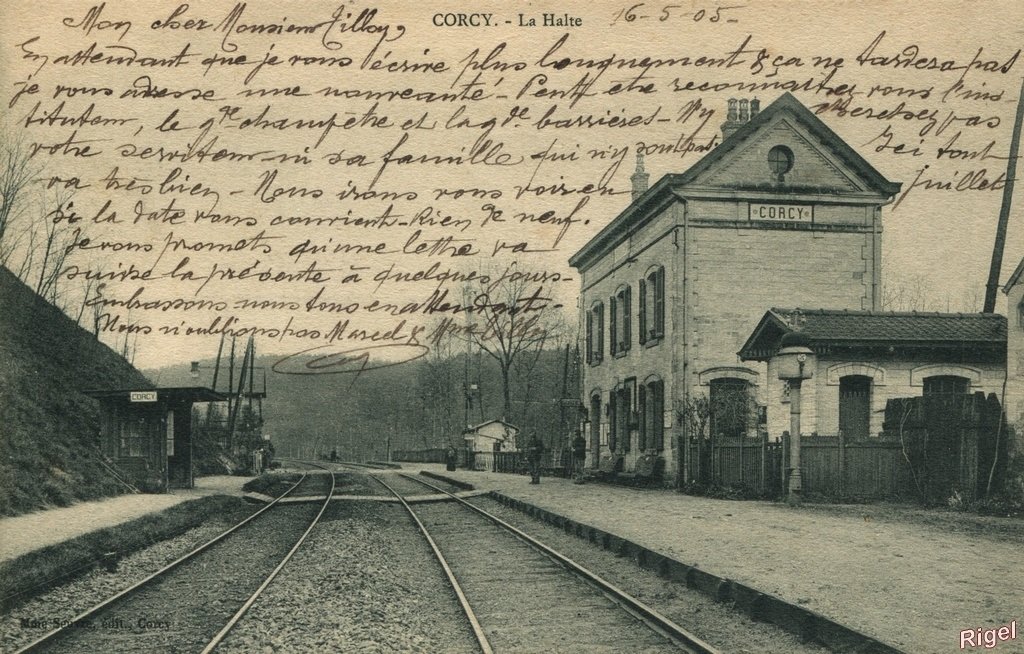 CORCY. - La Halte
16-5-05-
Mon cher Monsieur Tilloy,
En attendant que je vous écrire plus longuement & ça ne tardera pas
je vous adresse une nouveauté - Peut être reconnaîtrez vous l'ins
tituteur, le gde champêtre et la gde barrières - N'y cherchez pas
votre serviteur ni sa famille qui n'y sont pas. Ici tout
va très bien - Nous irons vous voir en juillet
si la date vous convient - Rien de neuf.
Je vous promets qu'une lettre va
suivre la présente à quelques jours -
Embrassons nous tous en attendant -
Nous n'oublions pas Marcel & Mme Tilloy
CORCY
CORCY
Mme Seuvre, édit., Corcy
Rigel